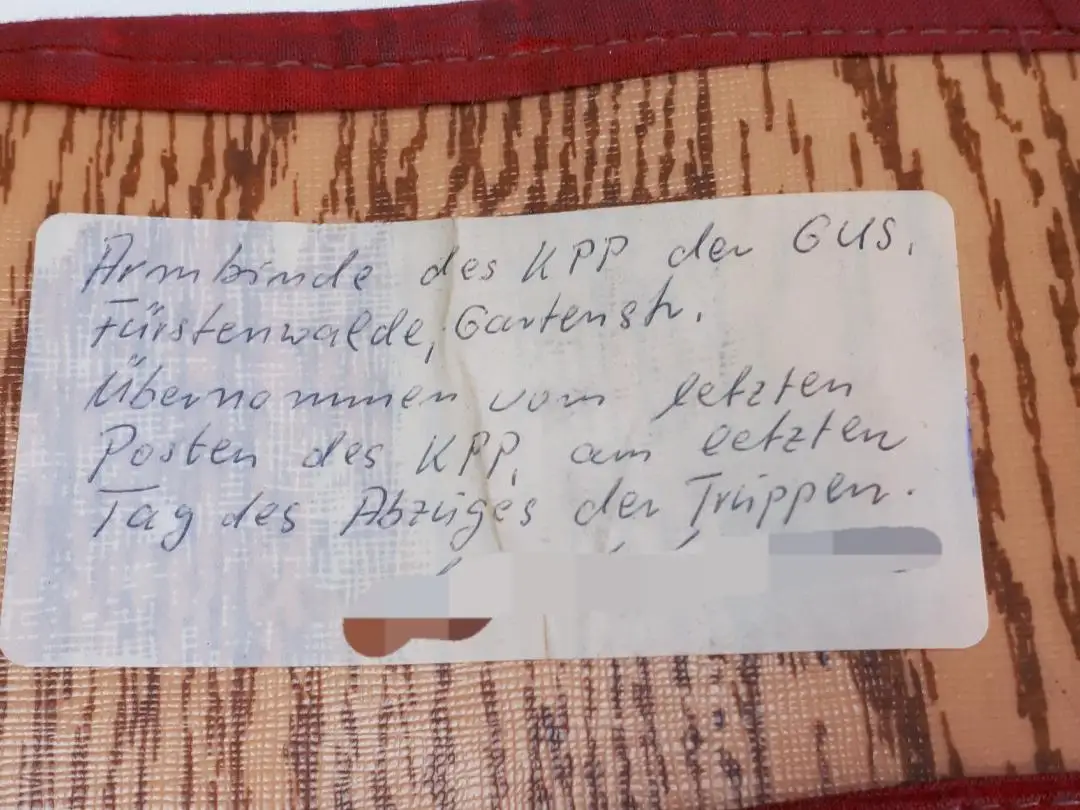 Armbinde des KPP der GUS.
Fürstenwalde, Gartenstr.
Übernommen vom letzten
Posten des KPP, am letzten
Tag des Abzuges der Truppen.